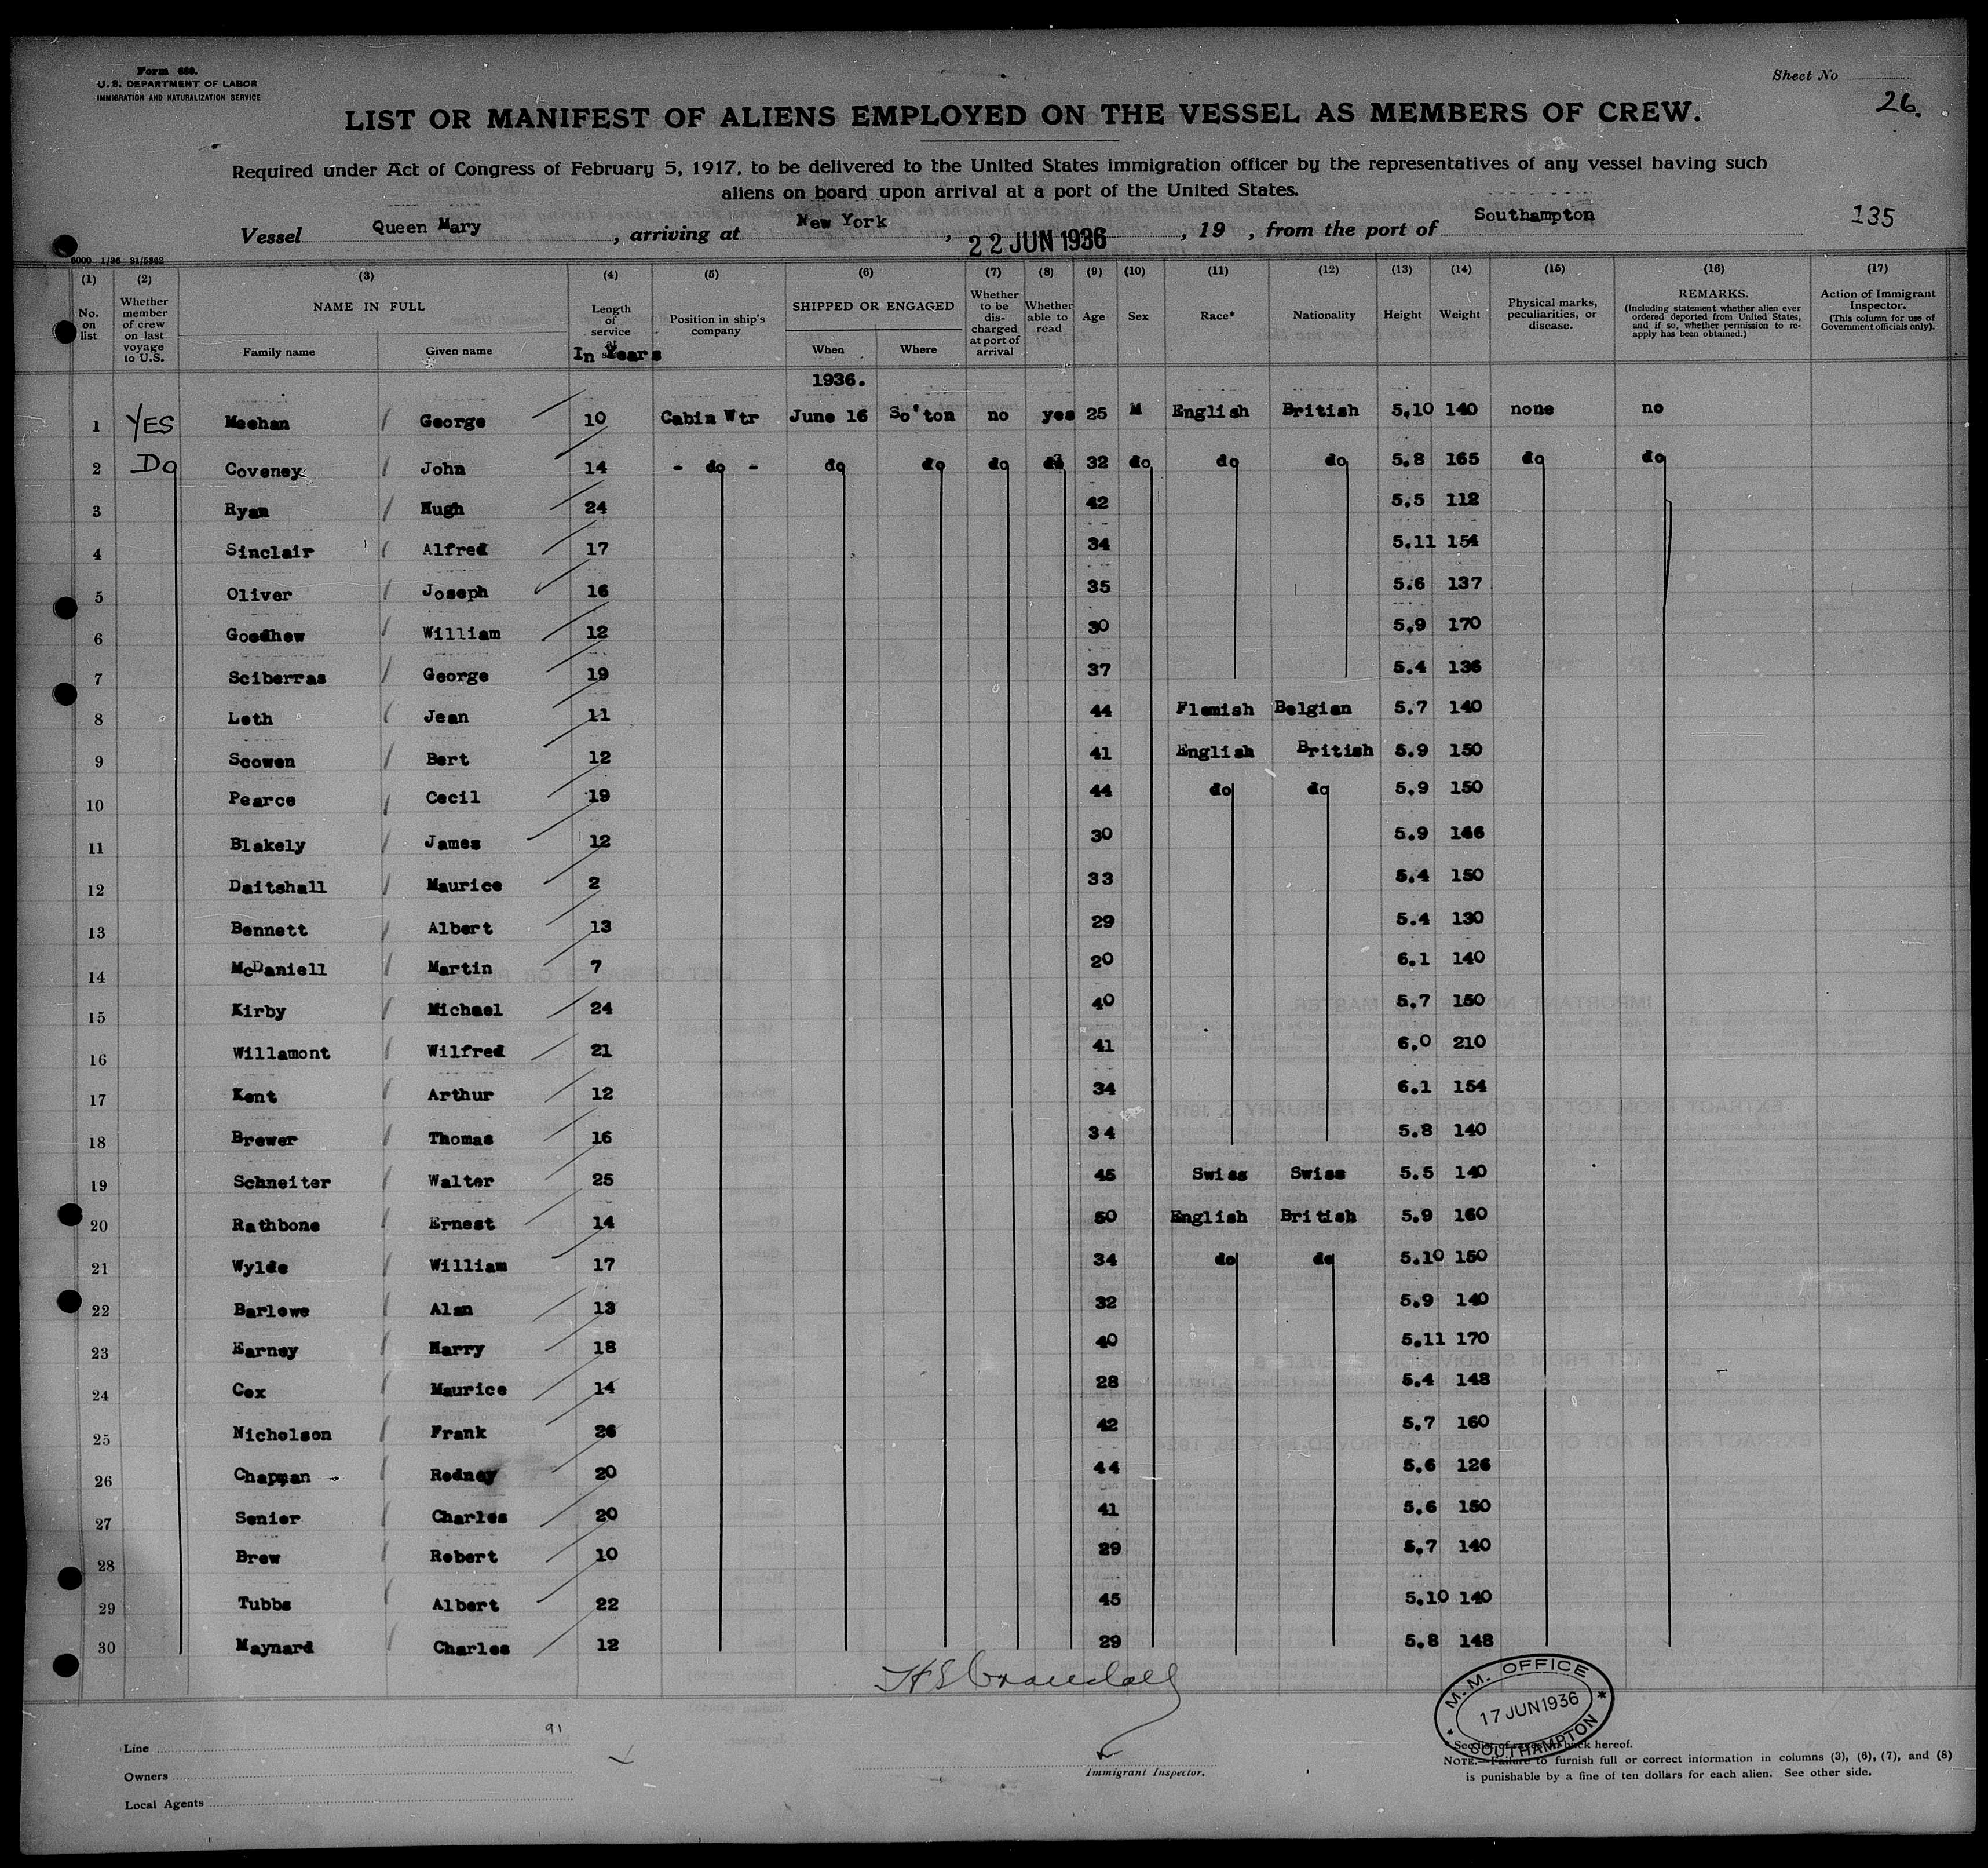 Form 680.
U. S. DEPARTMENT OF LABOR
IMMIGRATION AND NATURALIZATION SERVICE
Sheet No
26.
LIST OR MANIFEST OF ALIENS EMPLOYED ON THE VESSEL AS MEMBERS OF CREW.
Required under Act of Congress of February 5, 1917, to be delivered to the United States immigration officer by the representatives of any vessel having such
aliens on board upon arrival at a port of the United States.
Vessel Queen Mary, arriving at New York, 22 JUN 1936, 19 , from the port of Southampton 135
6000 1/36 31/5362
(1) (2) (3) (4) (5) (6) (7) (8) (9) (10) (11) (12) (13) (14) (15) (16) (17)
No. on list Whether member of crew on last voyage to U.S. NAME IN FULL Family name Given name Length of service at In Years Position in ship's company SHIPPED OR ENGAGED When Where Whether to be discharged at port of arrival Whether able to read Age Sex Race* Nationality Height Weight Physical marks, peculiarities, or disease. REMARKS. (Including statement whether alien ever ordered deported from United States, and if so, whether permission to re-apply has been obtained.) Action of Immigrant Inspector. (This column for use of Government officials only).
1936.
1 YES Meehan George 10 Cabin Wtr June 16 So'ton no yes 25 M English British 5.10 140 none no
2 Do Coveney John 14 - do - do do do do 32 do do do 5.8 165 do do
3 Ryan Hugh 24 42 5.5 112
4 Sinclair Alfred 17 34 5.11 154
5 Oliver Joseph 16 35 5.6 137
6 Goodhew William 12 30 5.9 170
7 Sciberras George 19 37 5.4 136
8 Loth Jean 11 44 Flemish Belgian 5.7 140
9 Scowen Bert 12 41 English British 5.9 150
10 Pearce Cecil 19 44 do do 5.9 150
11 Blakely James 12 30 5.9 166
12 Daitshall Maurice 2 33 5.4 150
13 Bennett Albert 13 29 5.4 130
14 McDaniell Martin 7 20 6.1 140
15 Kirby Michael 24 40 5.7 150
16 Willamont Wilfred 21 41 6.0 210
17 Kent Arthur 12 34 6.1 154
18 Brewer Thomas 16 34 5.8 140
19 Schneiter Walter 25 45 Swiss Swiss 5.5 140
20 Rathbone Ernest 14 50 English British 5.9 160
21 Wylde William 17 34 do do 5.10 150
22 Barlowe Alan 13 32 5.9 140
23 Earney Harry 18 40 5.11 170
24 Cox Maurice 14 28 5.4 148
25 Nicholson Frank 26 42 5.7 160
26 Chapman Rodney 20 44 5.6 126
27 Senior Charles 20 41 5.6 150
28 Brew Robert 10 29 5.7 140
29 Tubbs Albert 22 45 5.10 140
30 Maynard Charles 12 29 5.8 148
M.M. OFFICE
17 JUN 1936
SOUTHAMPTON
91
Line
Owners
Local Agents
Immigrant Inspector.
* See list of races on back hereof.
NOTE.—Failure to furnish full or correct information in columns (3), (6), (7), and (8)
is punishable by a fine of ten dollars for each alien. See other side.